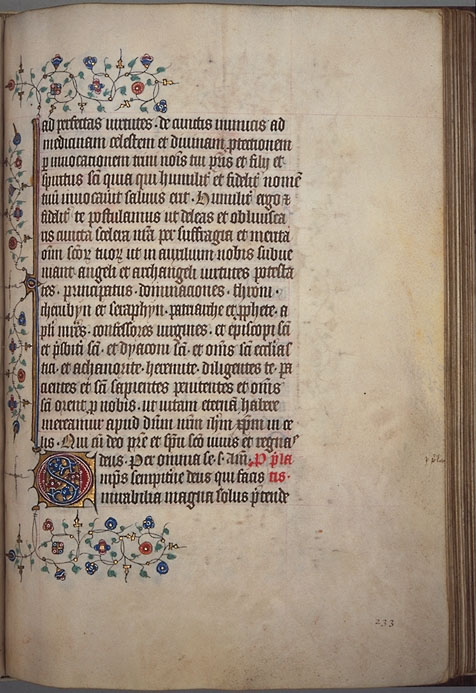 ad perfectas virtutes · de cunctis inimicis ad
medicinam celestem et divinam protectionem
p invocationem trini nois tui pris et filij et
spiritus sci quia qui humilit et fidelit nome
tuu invocavit salvus erit · Humilit ergo et
fidelit te postulamus ut deleas et oblivisca
ris cuncta scelera nra per suffragia et merita
oim scor tuor ut in auxilium nobis subve
niant angeli et archangeli virtutes potesta
tes · principatus · dominaciones · throni ·
cherubyn et seraphyn · patriarche et pphete · a
pli mres · confessores virgines · et episcopi sci
et psbiti sci · et dyaconi sci · et omis sci ecclias
tici · et achanorite · heremite · diligentes te · pa
cientes et sci sapientes penitentes et omis
sci orent p nobis · ut vitam eterna habere
mereamur apud dnm nrm ihm xpm in ce
lis · Qui cu deo pre et spu sco vivis et regnas
deus · Per omnia se · s · am · P pla
mps sempitne deus qui facis tis ·
mirabilia magna solus ptende
233